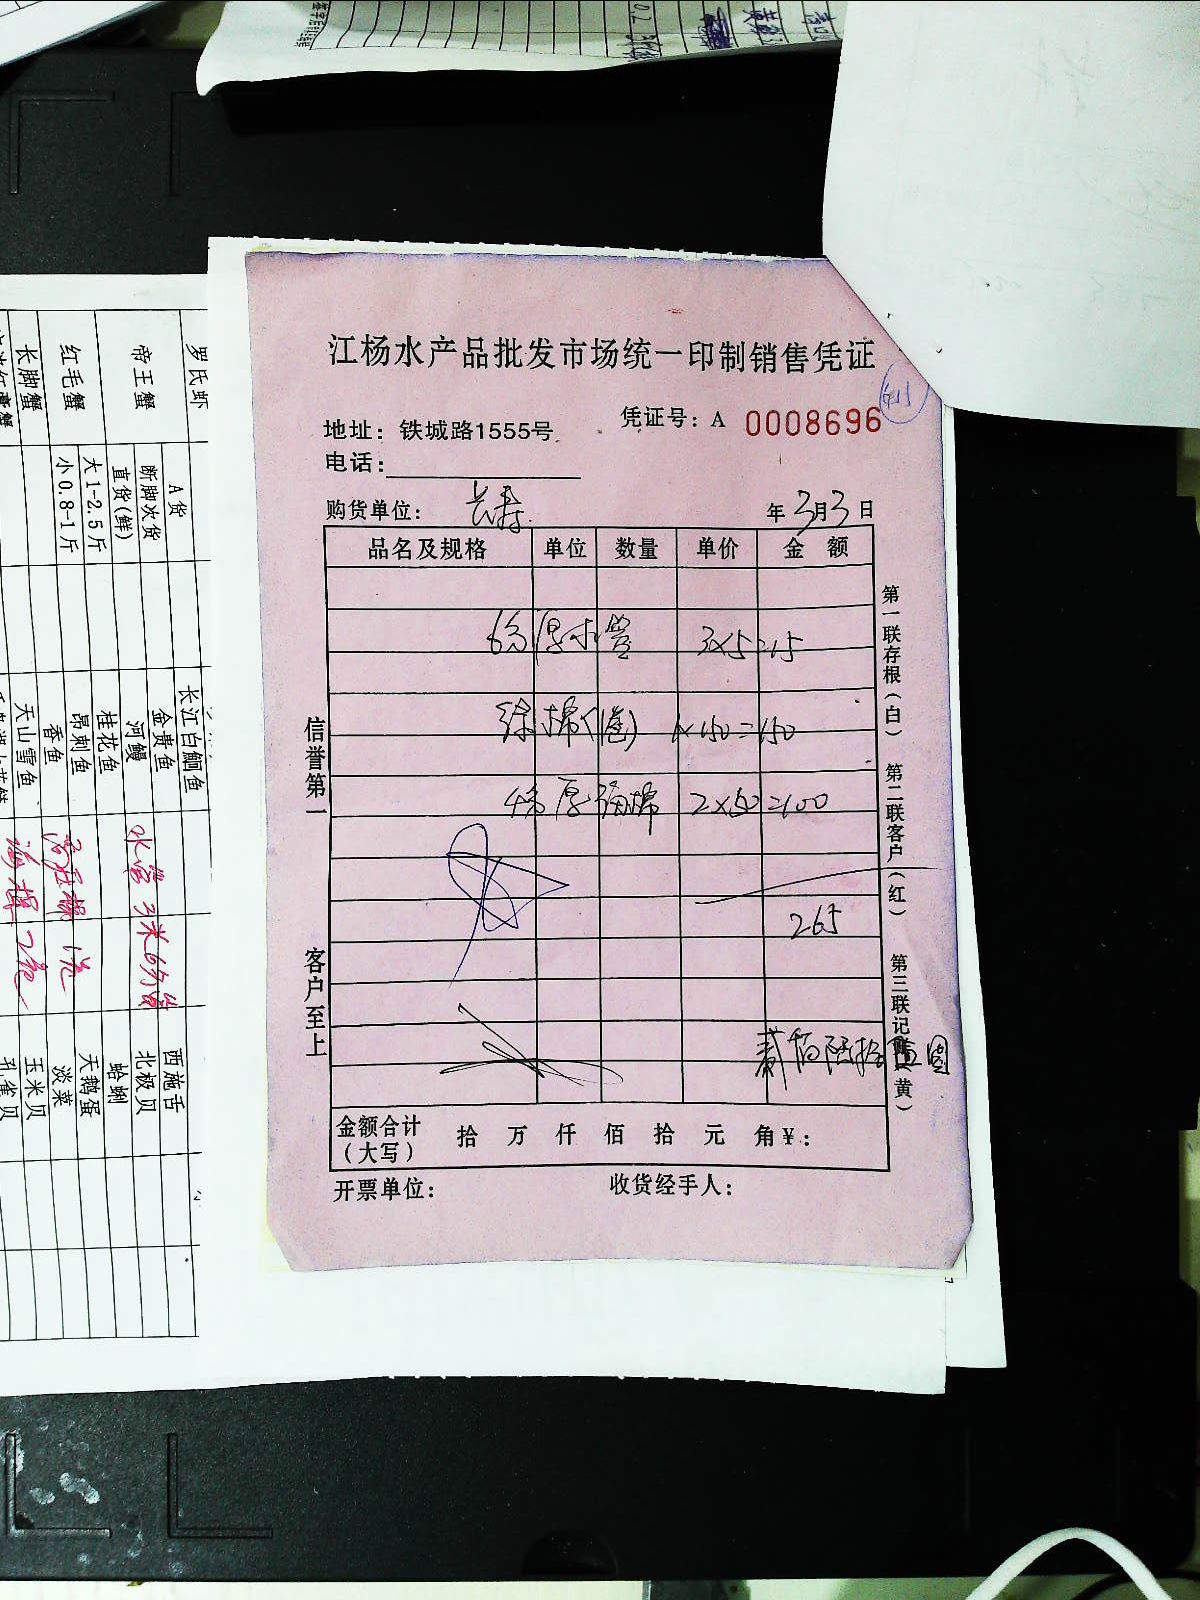 江杨水产品批发市场统一印制销售凭证
地址：铁城路1555号
凭证号：A 0008696
电话：
购货单位：长寿
年3月3日
品名及规格 单位 数量 单价 金额
6分厚水管 3×5=15
绿棉(卷) 1×150=150
厚海棉 2×50=100
265
贰佰陆拾伍圆
金额合计（大写） 拾 万 仟 佰 拾 元 角 ¥：
开票单位： 收货经手人：
信誉第一
客户至上
第一联存根（白）
第二联客户（红）
第三联记账（黄）
罗氏虾
A货
帝王蟹
断脚次货
直货(鲜)
红毛蟹
大1-2.5斤
小0.8-1斤
长脚蟹
长江白鮰鱼
金贵鱼
河鳗
桂花鱼
昂刺鱼
香鱼
天山雪鱼
水管 3米 6分管
海棉 2包
西施舌
北极贝
蛤蜊
天鹅蛋
淡菜
玉米贝
孔雀贝